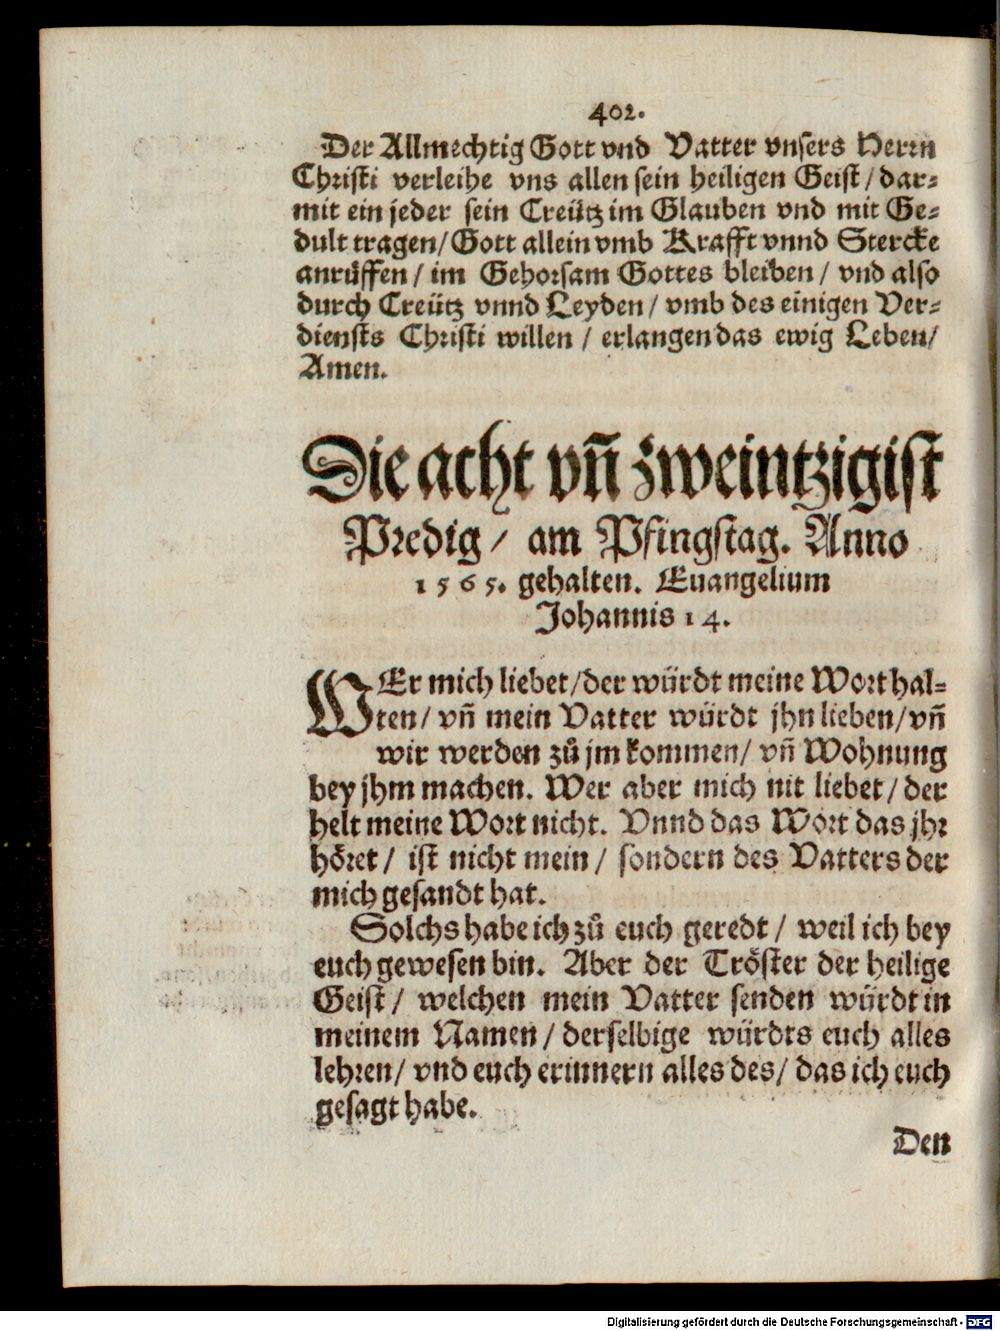 402.
Der Allmechtig Gott vnd Vatter vnsers Herrn
Christi verleihe vns allen sein heiligen Geist / dar-
mit ein jeder sein Creütz im Glauben vnd mit Ge-
dult tragen / Gott allein vmb Krafft vnnd Stercke
anrüffen / im Gehorsam Gottes bleiben / vnd also
durch Creütz vnnd Leyden / vmb des einigen Ver-
diensts Christi willen / erlangen das ewig Leben /
Amen.
Die acht vñ zweintzigist
Predig / am Pfingstag. Anno
1565. gehalten. Euangelium
Johannis 14.
WEr mich liebet / der würdt meine Wort hal-
ten / vñ mein Vatter würdt jhn lieben / vñ
wir werden zů jm kommen / vñ Wohnung
bey jhm machen. Wer aber mich nit liebet / der
helt meine Wort nicht. Vnnd das Wort das jhr
höret / ist nicht mein / sondern des Vatters der
mich gesandt hat.
Solchs habe ich zů euch geredt / weil ich bey
euch gewesen bin. Aber der Tröster der heilige
Geist / welchen mein Vatter senden würdt in
meinem Namen / derselbige würdts euch alles
lehren / vnd euch erinnern alles des / das ich euch
gesagt habe.
Den
Digitalisierung gefördert durch die Deutsche Forschungsgemeinschaft - DFG